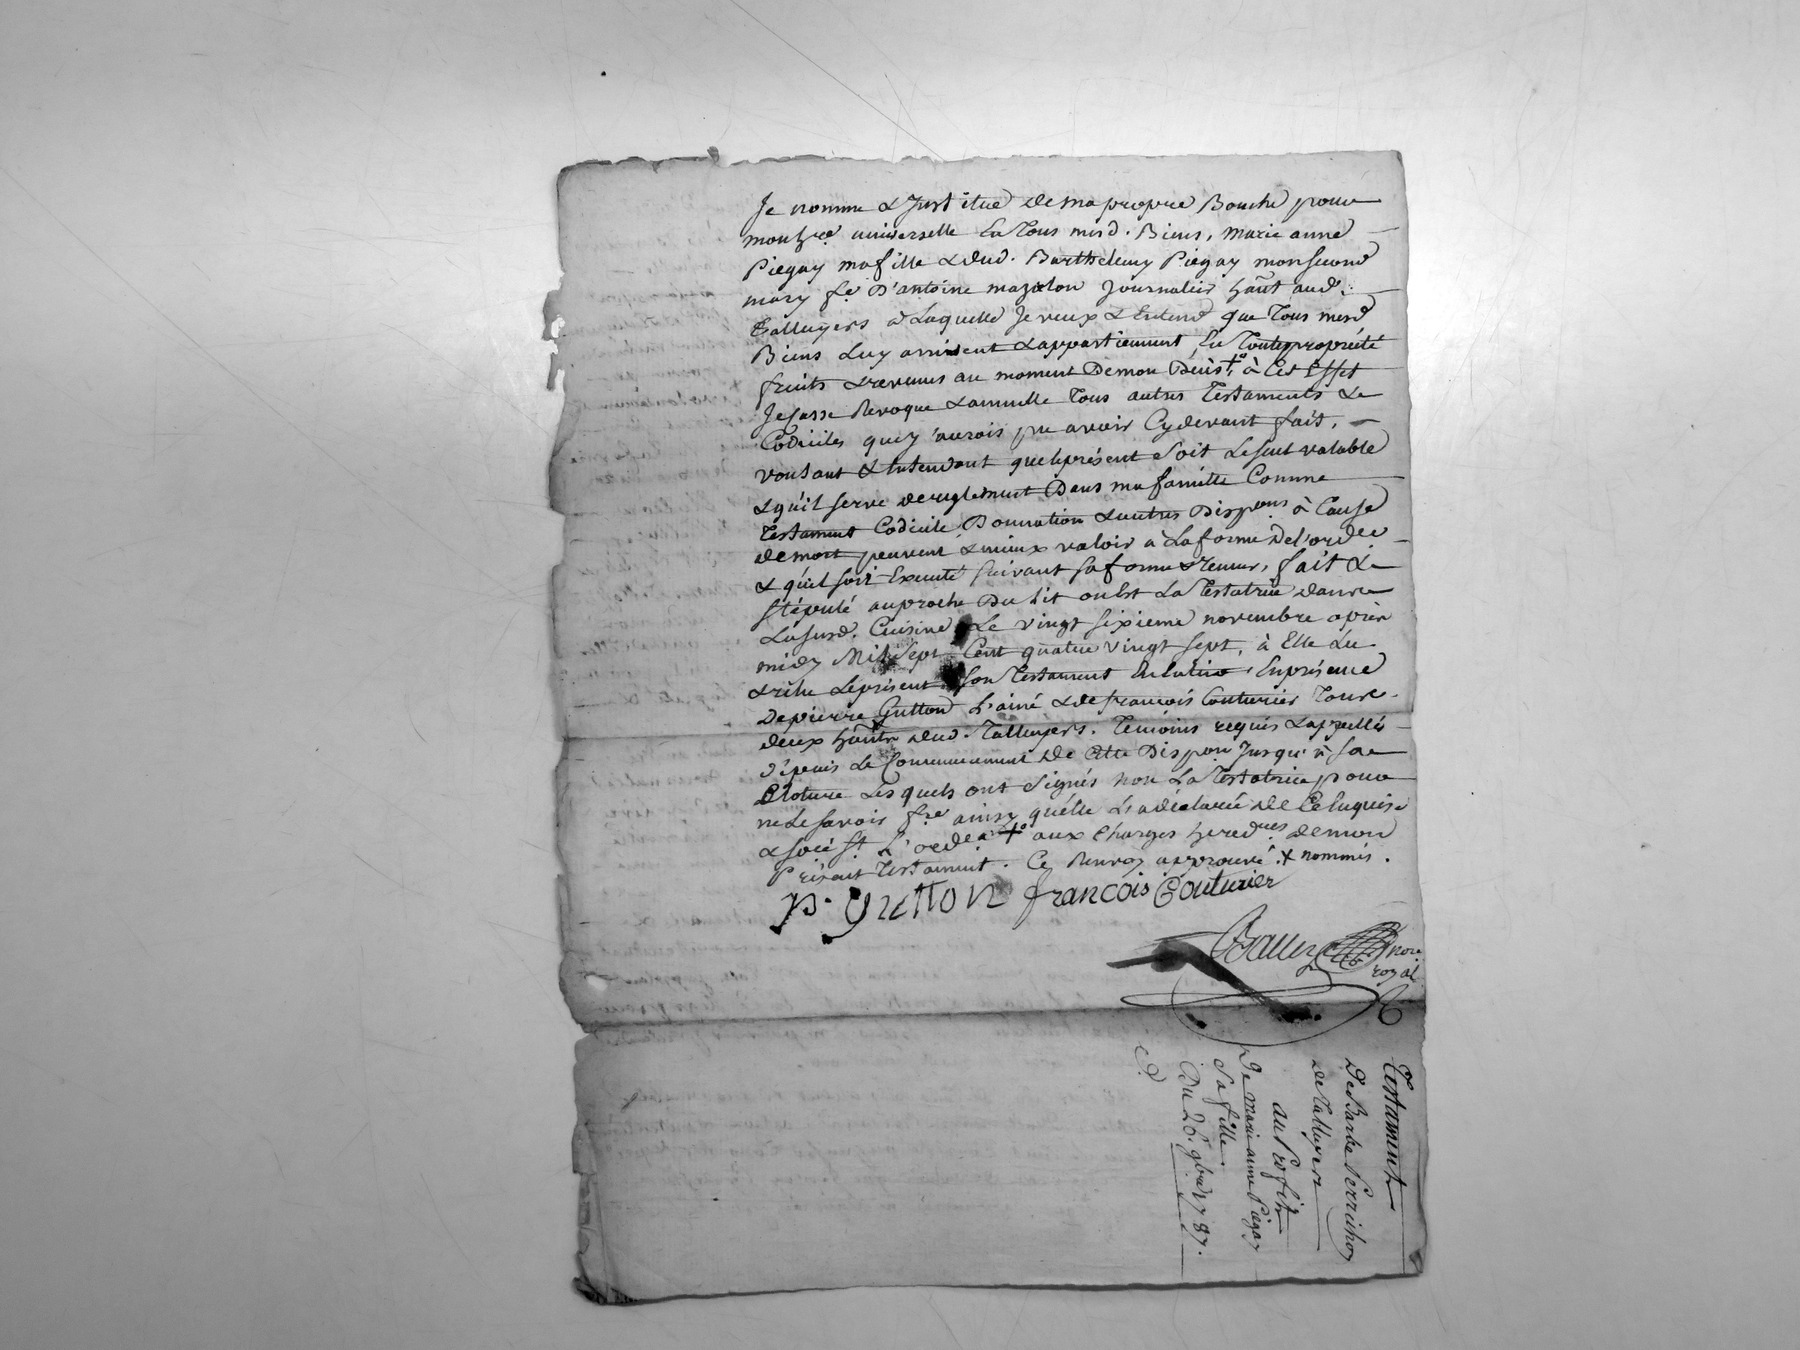 Je nomme & Institue de ma propre Bouche pour
mon hre. universelle En Tous mesd. Biens, Marie anne
Piegay ma fille & dud. Barthelemy Piegay mon second
mary fe. D'antoine mazalon Journalier hañt aud.
Talluyers a Laquelle Je veux & Entend que Tous mesd
Biens Luy arrivent & appartiennent En Toute propriété
fruits & revenus au moment De mon Deces + à Cet Effet
Je Casse Revoque & annulle Tous autres Testaments &
Codiciles que J'aurois pu avoir Cy devant fait,
voulant & Entendant que le présent soit Le seul valable
& qu'il serve de reglement Dans ma famille Comme
Testament Codicile, Donnation & autres Dispons à Cause
de mort peuvent & mieux valoir a La forme De l'ordce
& qu'il soit Executé suivant sa forme & Teneur, fait &
stipulé au proche Du Lit ou Est La Testatrice dans
La susd. Cuisine Le vingt sixieme novembre après
midy Mil Sept Cent quatre vingt sept, à Elle Lu
& relu Le présent son Testament En Entier En présence
De pierre Gutton L'ainé & de françois Couturier Tous
deux hãnts dud. Talluyers. Temoins requis & appellés
depuis Le Commencement De Cette Dispon Jusqu'à sa
Cloture Lesquels ont signés non La Testatrice pour
ne Le savoir fre ainsy qu'elle L'a déclaré de Ce Enquise
& soée st. L'ordce + aux Charges heredres de mon
Présent Testament. Ce Renvoy approuvé. + nommés.
P. Gutton francois Couturier
nore
royal
Testament
De Barbe Perrichon
de Talluyers
au Profit
De marie anne Piegay
sa fille
Du 26e. 9bre 1787.